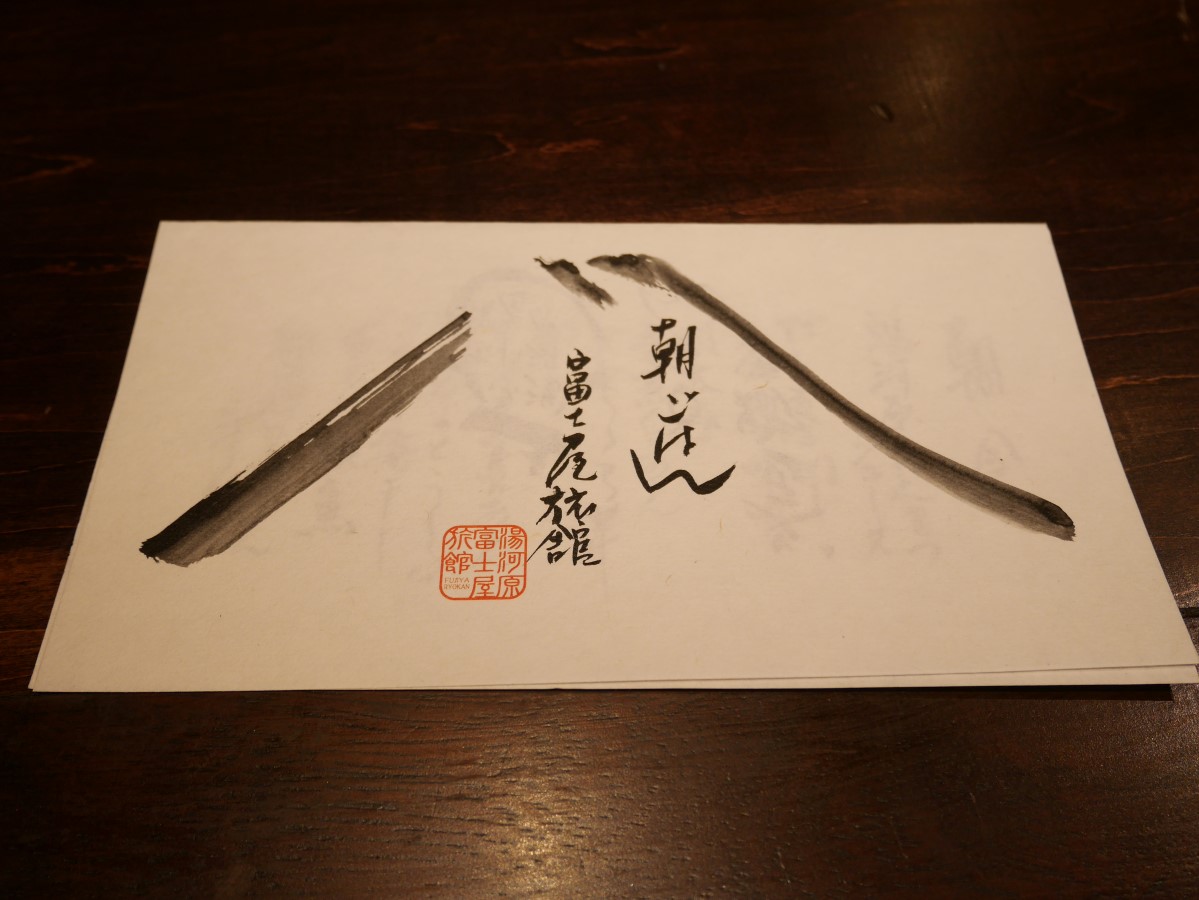 朝ごはん
富士屋旅館
湯河原
富士屋
旅館
FUJIYA
RYOKAN